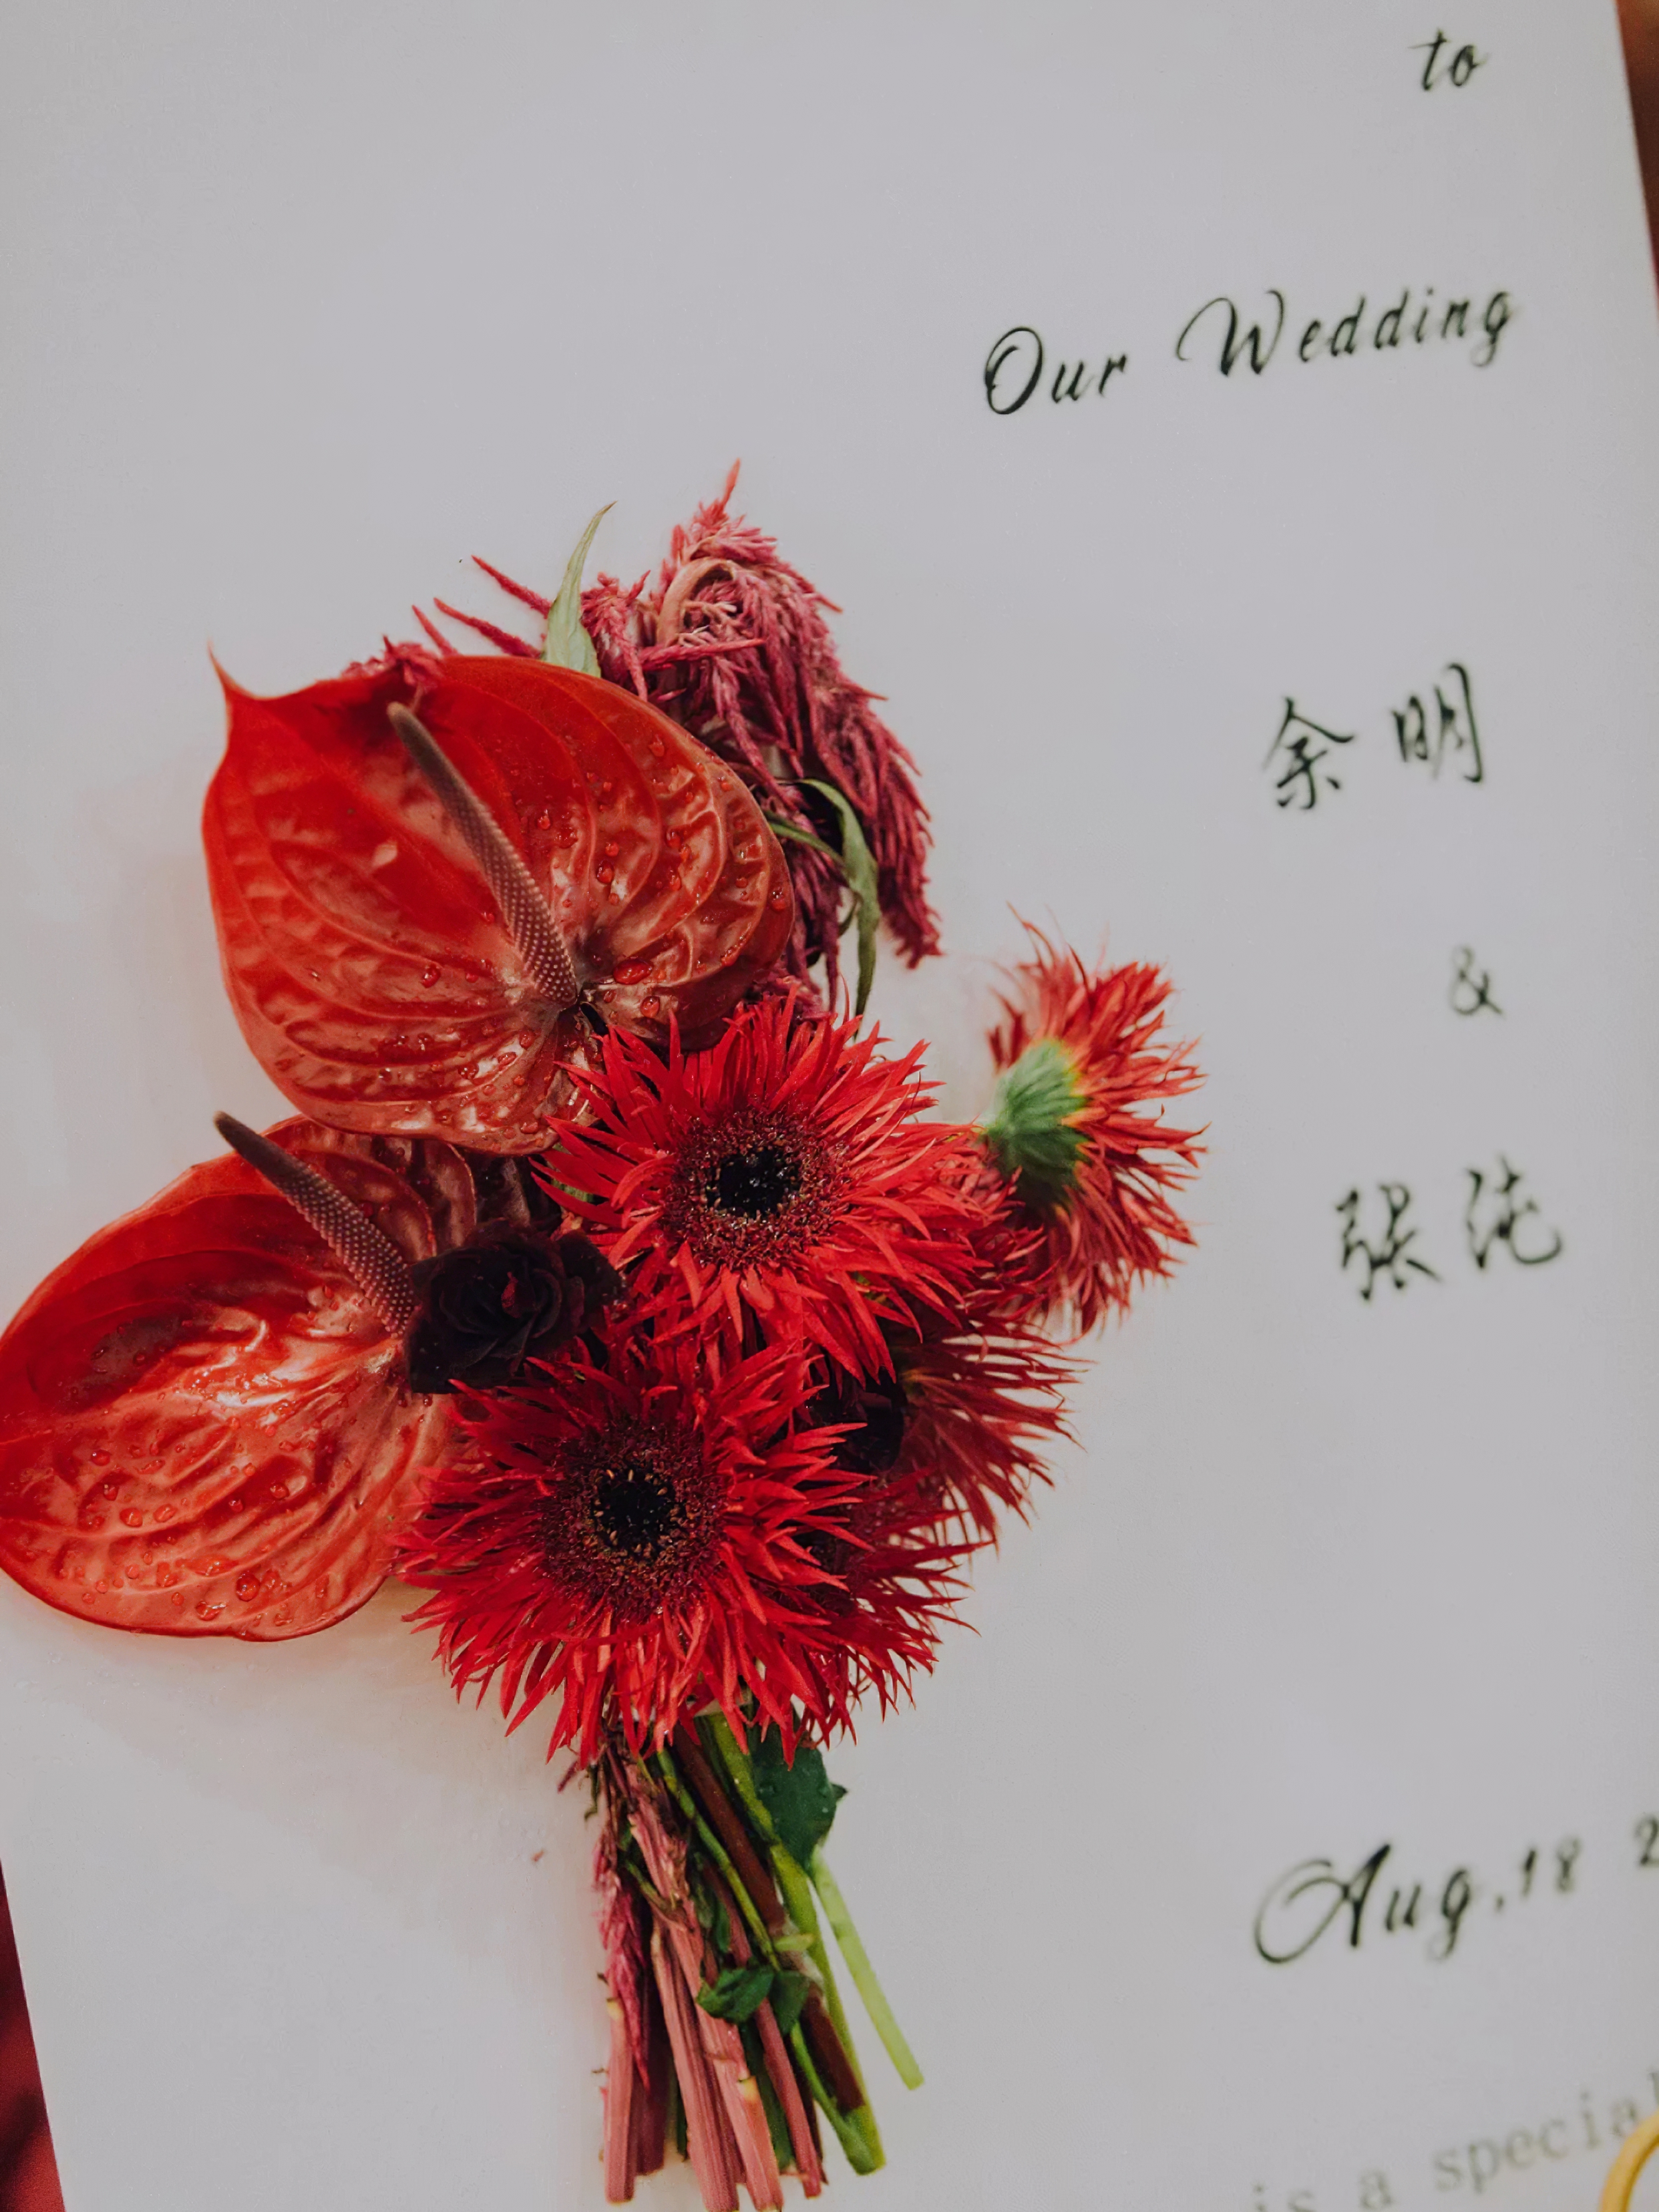 to
Our Wedding
余明
&
张纯
Aug.18 2
is a special